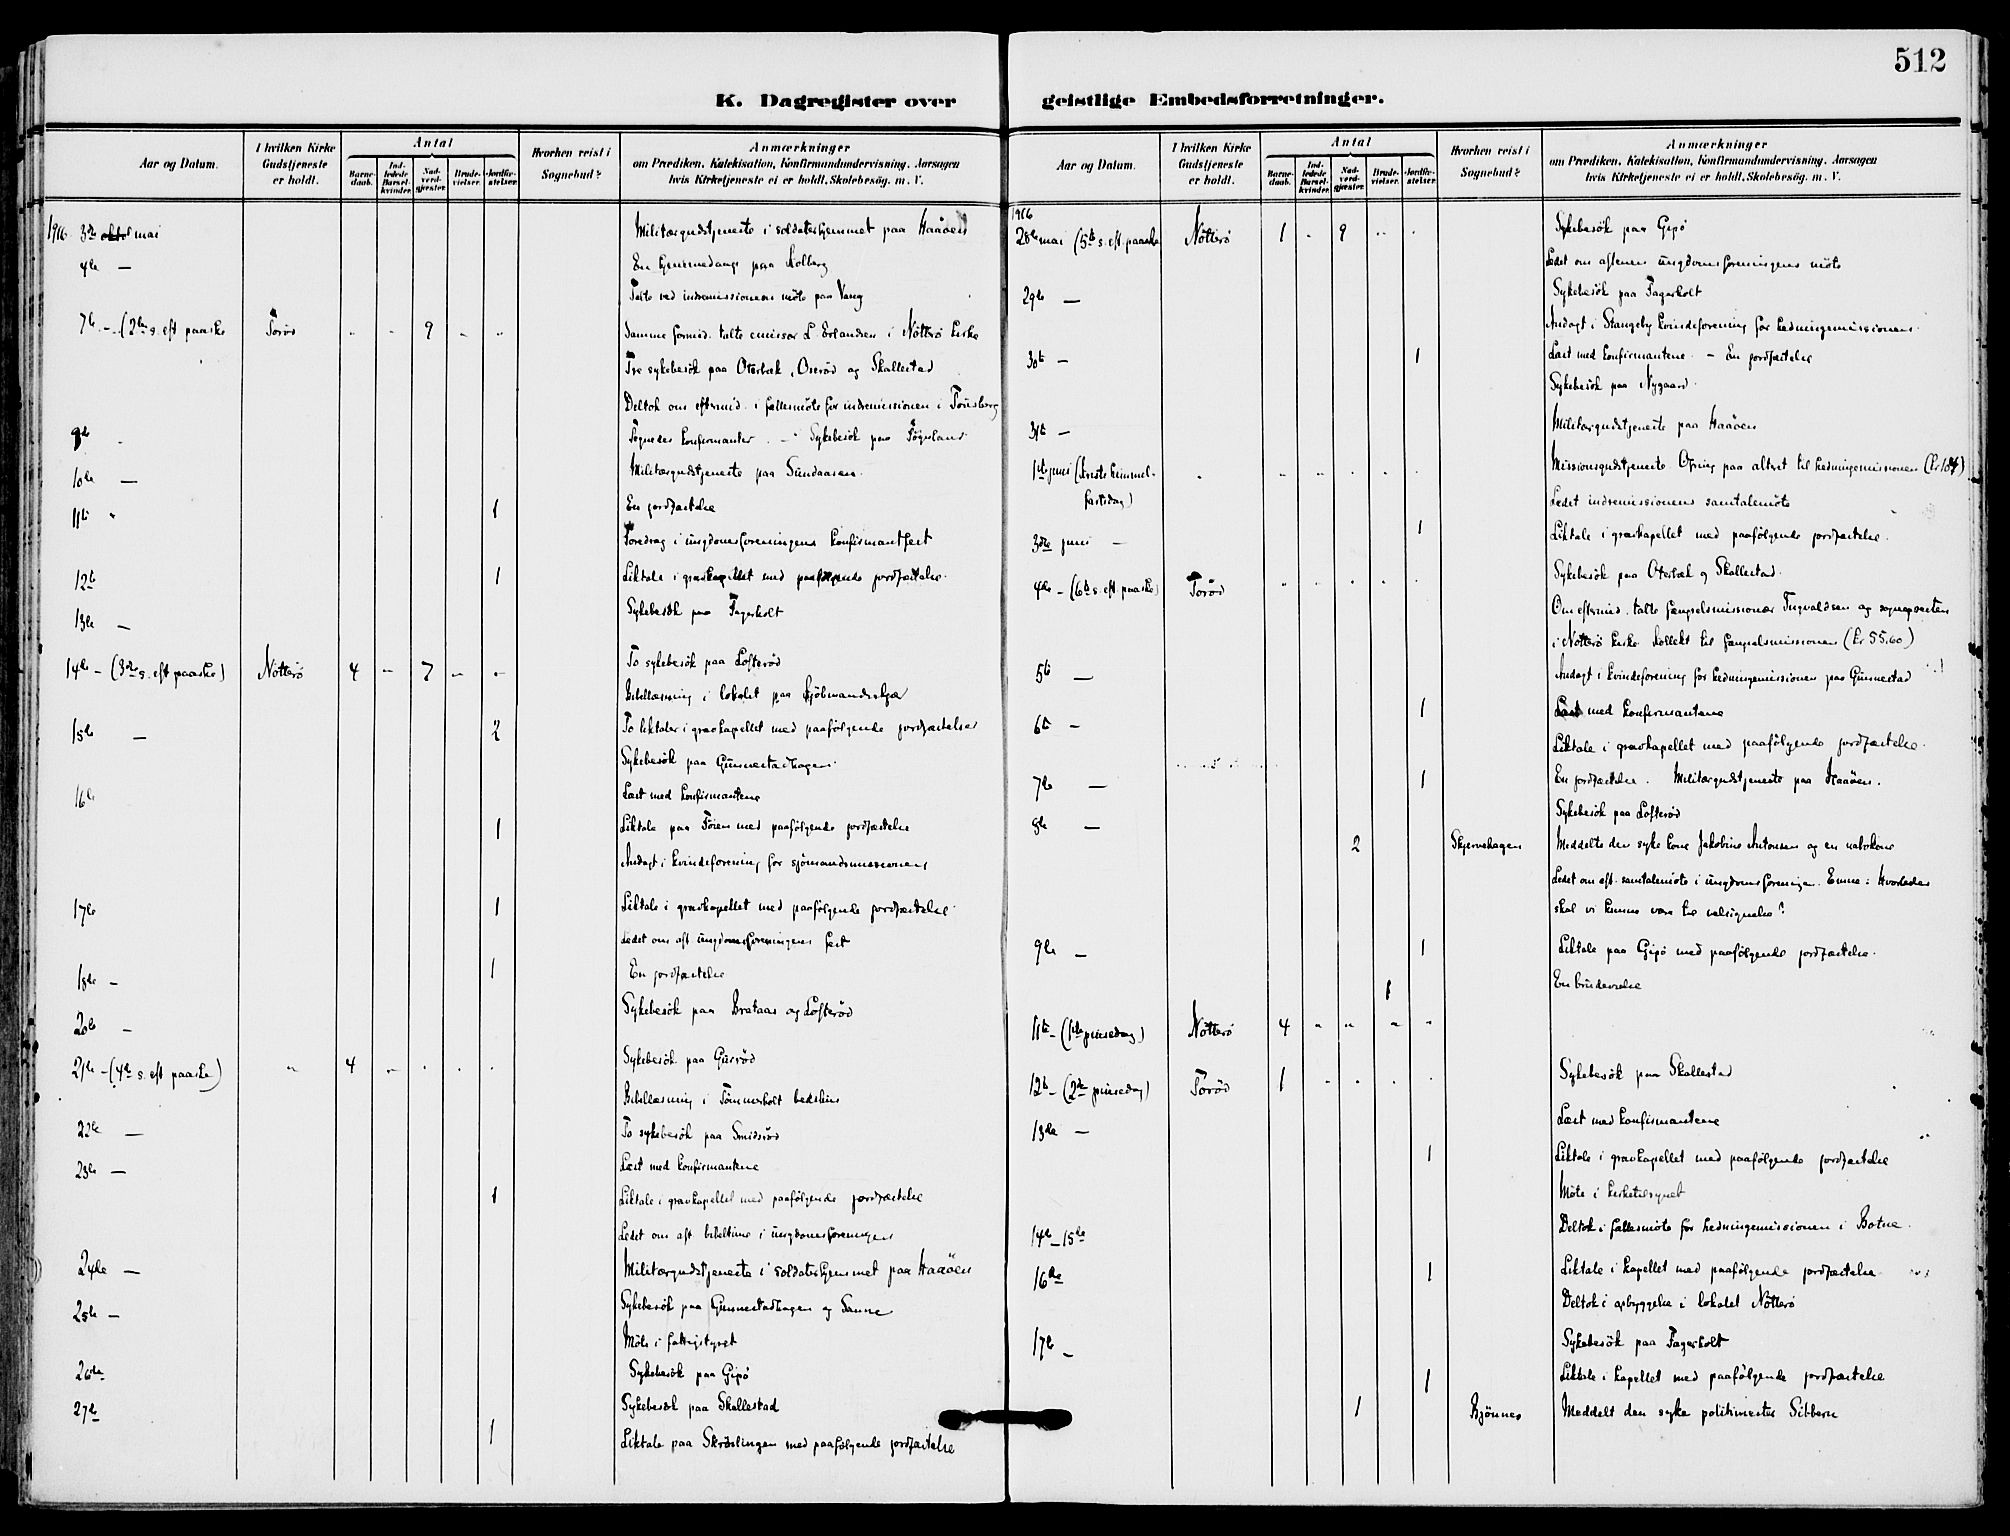 512
K. Dagregister over geistlige Embedsforretninger.
Aar og Datum.
I hvilken Kirke Gudstjeneste er holdt.
Antal
Barnedaab.
Indledede Barselkvinder.
Nadverdgjester.
Brudevielser.
Jordfæstelser.
Hvorhen reist i Sognebud?
Anmærkninger
om Prædiken, Katekisation, Konfirmandundervisning. Aarsagen
hvis Kirketjeneste ei er holdt, Skolebesøg. m. V.
1916 3die mai Militærgudstjeneste i soldaterhjemmet paa Haaöen
4de — En hjemmedaap paa Kolberg
Talte ved indremissionens möte paa Vang
7de — (2den s. eft paaske Torød " " 9 " " Samme formid. talte emissær L Erlandsen i Nötterö kirke
Tre sykebesök paa Oterbæk, Oseröd og Skallestad
Deltok om eftermid. i fællesmöte for indremissionen i Tönsberg
9de Tegnedes konfirmanter. — Sykebesök paa Föynland
10de — Militærgudstjeneste paa Sundaasen.
11te " 1 En jordfæstelse
Foredrag i ungdomsforeningens konfirmantfest
12te 1 Liktale i gravkapellet med paafölgende jordfæstelse.
13de — Sykebesök paa Fagerholt
14de — (3die s. eft paaske) Nötterö 4 " 7 " " To sykebesök paa Lofteröd
Bibellæsning i lokalet paa Kjöbmandsskjær
15de — 2 To liktaler i gravkapellet med paafölgende jordfæstelser
Sykebesök paa Gunnestadhagen.
16de Læst med konfirmantene
1 Liktale paa Föien med paafölgende jordfæstelse
Andagt i kvindeforening for sjömandsmissionen
17de 1 Liktale i gravkapellet med paafölgende jordfæstelse.
Ledet om aft ungdomsforeningens fest
18de — 1 En jordfæstelse
20de — Sykebesök paa Brataas og Lofteröd
21de — (4de s. eft paaske) " 4 " " " " Sykebesök paa Guseröd
Bibellæsning i Tömmerholt bedehus
22de — To sykebesök paa Smidsröd
23de — Læst med konfirmantene
1 Liktale i gravkapellet med paafölgende jordfæstelse
Ledet om aft bibeltime i ungdomsforeningen
24de — Militærgudstjeneste i soldaterhjemmet paa Haaöen
25de — Sykebesök paa Gunnestadhagen og Sanne
Möte i fattigstyret
26de Sykebesök paa Gipö
27de Sykebesök paa Skallestad
1 Liktale paa Skröslingen med paafölgende jordfæstelse
Aar og Datum.
I hvilken Kirke Gudstjeneste er holdt.
Antal
Barnedaab.
Indledede Barselkvinder.
Nadverdgjester.
Brudevielser.
Jordfæstelser.
Hvorhen reist i Sognebud?
Anmærkninger
om Prædiken, Katekisation, Konfirmandundervisning. Aarsagen
hvis Kirketjeneste ei er holdt, Skolebesøg. m. V.
1916
28de mai (5te s. eft. paaske Nötterö 1 " 9 " " Sykebesök paa Gipö
Ledet om aftenen ungdomsforeningens möte
29de — Sykebesök paa Fagerholt
Andagt i Stangeby kvindeforening for hedningemissionen.
30te — 1 Læst med konfirmantene. — En jordfæstelse
Sykebesök paa Nygaard.
31te — Militærgudstjeneste paa Haaöen
1ste juni (kristi himmelfartsdag) " " " " " " Missionsgudstjeneste. Ofring paa altret til hedningemissionen (kr 184)
Ledet indremissionens samtalemöte
3die juni — 1 Liktale i gravkapellet med paafölgende jordfæstelse.
Sykebesök paa Oterbæk og Skallestad.
4de — (6te s. eft. paaske) Torød " " " " " Om eftermid. talte fængselsmissionær Ingvaldsen og sognepresten
i Nötterö kirke. Kollekt til fængselsmissionen (kr 55.60)
5te — Andagt i kvindeforening for hedningemissionen paa Gunnestad
6te — 1 Læst med konfirmantene
Liktale i gravkapellet med paafölgende jordfæstelse.
7de — 1 En jordfæstelse. Militærgudstjeneste paa Haaöen.
8de — Sykebesök paa Lofteröd
2 Skjervehagen Meddelte den syke kone Jakobine Antonsen og en nabokone
Ledet om aft. samtalemöte i ungdomsforeningen. Emne: Hvorledes
skal vi kunne være til velsignelse?
9de — 1 Liktale paa Gipö med paafölgende jordfæstelse.
1 En brudevielse
11te — (1ste pinsedag) Nötterö 4 " " " "
12te — (2den pinsedag) Torød 1 " " " " Sykebesök paa Skallestad
13de — Læst med konfirmantene
1 Liktale i gravkapellet med paafölgende jordfæstelse
Möte i kirketilsynet
14de — 15de Deltok i fællesmöte for hedningemissionen i Botne.
16de 1 Liktale i kapellet med paafölgende jordfæstelse
Deltok i opbyggelse i lokalet Nötterö
17de — Sykebesök paa Fagerholt
1 Liktale i kapellet med paafölgende jordfæstelse
1 Bjönnes Meddelt den syke politimester Sibbern